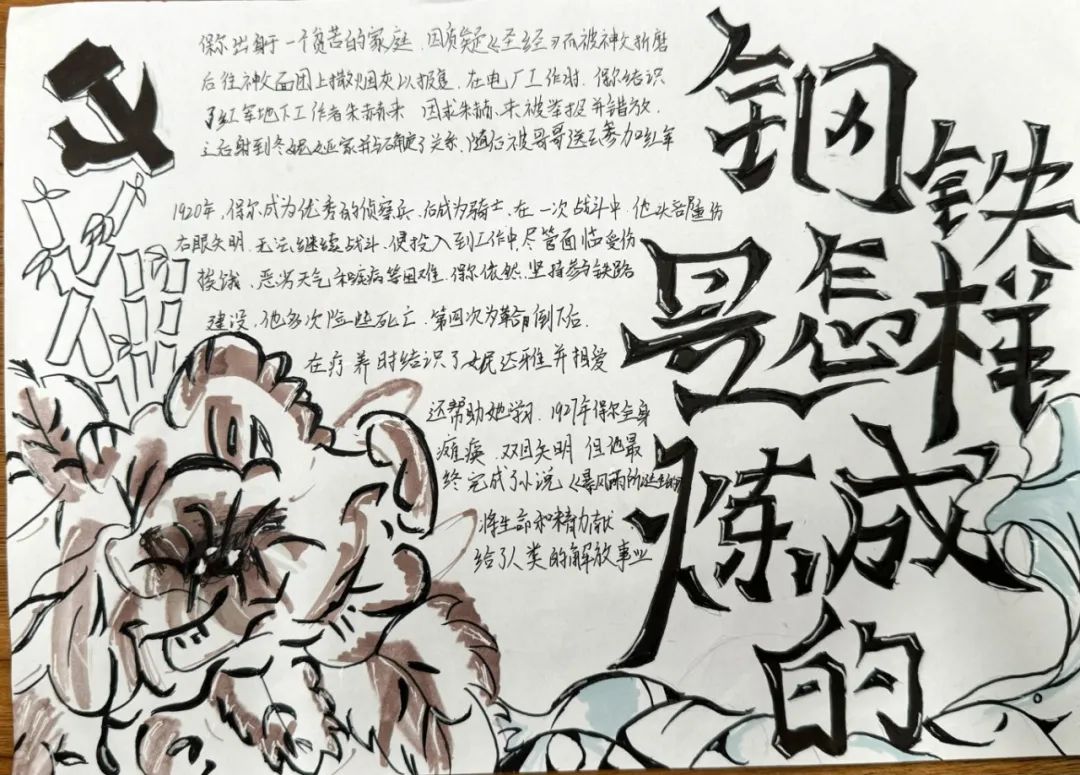 钢铁
是怎样
炼成
的
保尔出身于一个贫苦的家庭，因质疑《圣经》而被神父折磨
后往神父面团上撒烟灰以报复，在电厂工作时，保尔结识
了红军地下工作者朱赫来 因求朱赫来被举报并错放，
之后躲到冬妮娅家并与确定了关系，随后被哥哥送去参加红军
1920年，保尔成为优秀的侦察兵，后成为骑士，在一次战斗中，他头部受伤
右眼失明，无法继续战斗，便投入到工作中，尽管面临受伤
挨饿，恶劣天气和疾病等困难，保尔依然坚持参与铁路
建设，他多次险些死亡，第四次为革命倒下后，
在疗养时结识了女民达雅并相爱
还帮助她学习，1927年保尔全身
瘫痪，双目失明 但他最
终完成了小说《暴风雨所诞生的》
将生命和精力献
给了人类的解放事业